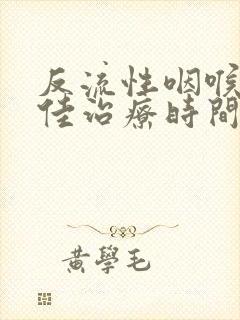 反流性咽喉
佳治療時間
黃學毛